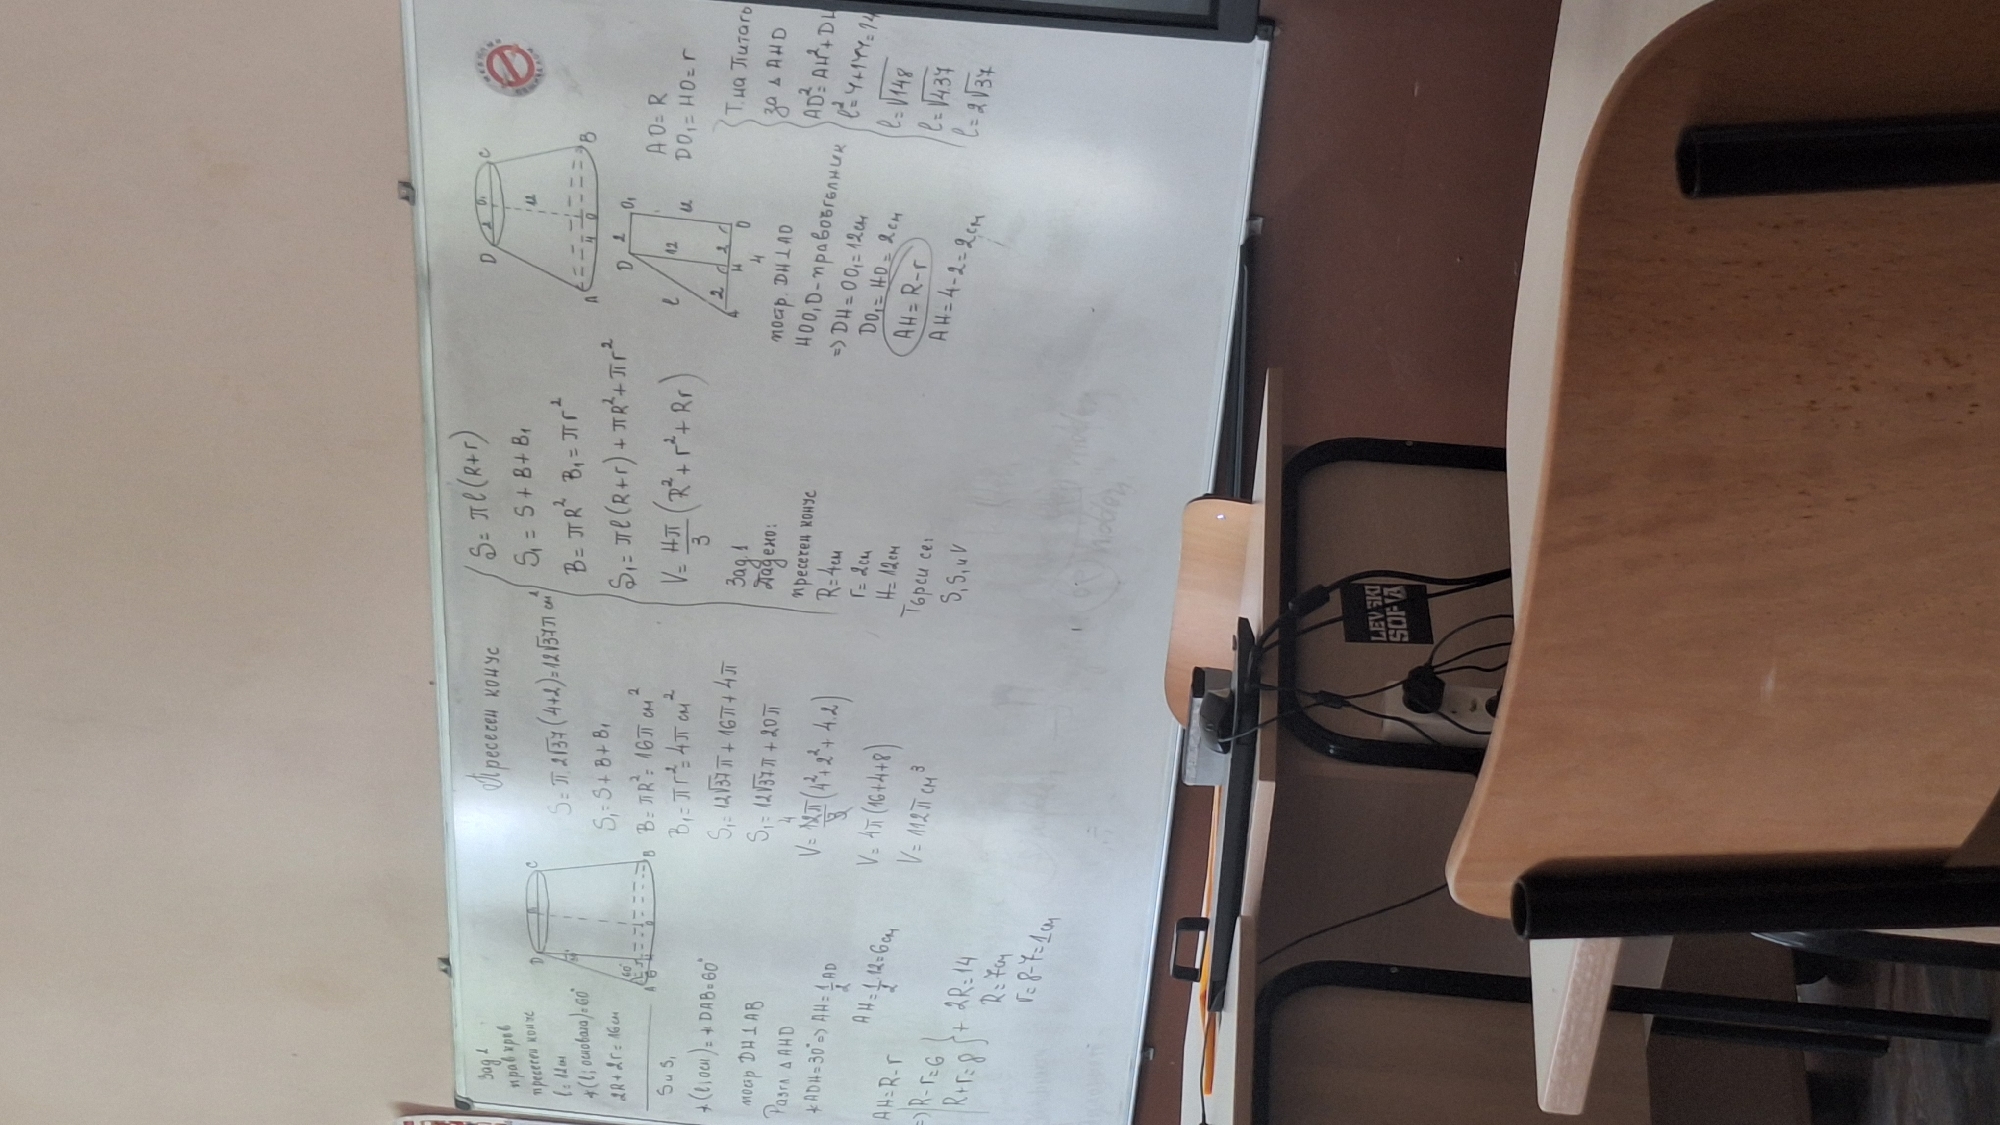 Пресечен конус
Зад 2
прав кръв
пресечен конус
l = 12 см
∢(l; основата) = 60°
2R + 2r = 16 см
S и S₁
∢(l; осн) = ∢DAB = 60°
постр DH ⊥ AB
Разгл. △ AHD
∢ADH = 30° => AH = 1/2 AD
AH = 1/2 · 12 = 6 см
AH = R - r
=> | R - r = 6
| R + r = 8 } + 2R = 14
R = 7 см
r = 8 - 7 = 1 см
D C
60°
A B
S = π 2√37 (4+2) = 12√37 π см²
S₁ = S + B + B₁
B = πR² = 16π см²
B₁ = πr² = 4π см²
S₁ = 12√37π + 16π + 4π
S₁ = 12√37π + 20π
V = 12π/3 (4² + 2² + 4.2)
4
V = 4π (16+4+8)
V = 112π см³
S = πl(R+r)
S₁ = S + B + B₁
B = πR² B₁ = πr²
S₁ = πl(R+r) + πR² + πr²
V = Hπ/3 (R² + r² + Rr)
Зад. 1
Дадено:
пресечен конус
R = 4 см
r = 2 см
H = 12 см
Търси се:
S, S₁ и V
D 2 O₁ C
H
A 4 O B
D 2 O₁
l 12 H
A 2 H 2 O
4
AO = R
DO₁ = HO = r
постр. DH ⊥ AO
HOO₁D - правоъгълник
=> DH = OO₁ = 12 см
DO₁ = HO = 2 см
AH = R - r
AH = 4 - 2 = 2 см
Т. на Питаго
за △ AHD
AD² = AH² + DH
l² = 4 + 144 = 14
l = √148
l = √4.37
l = 2√37
LEVSKI
SOFIA